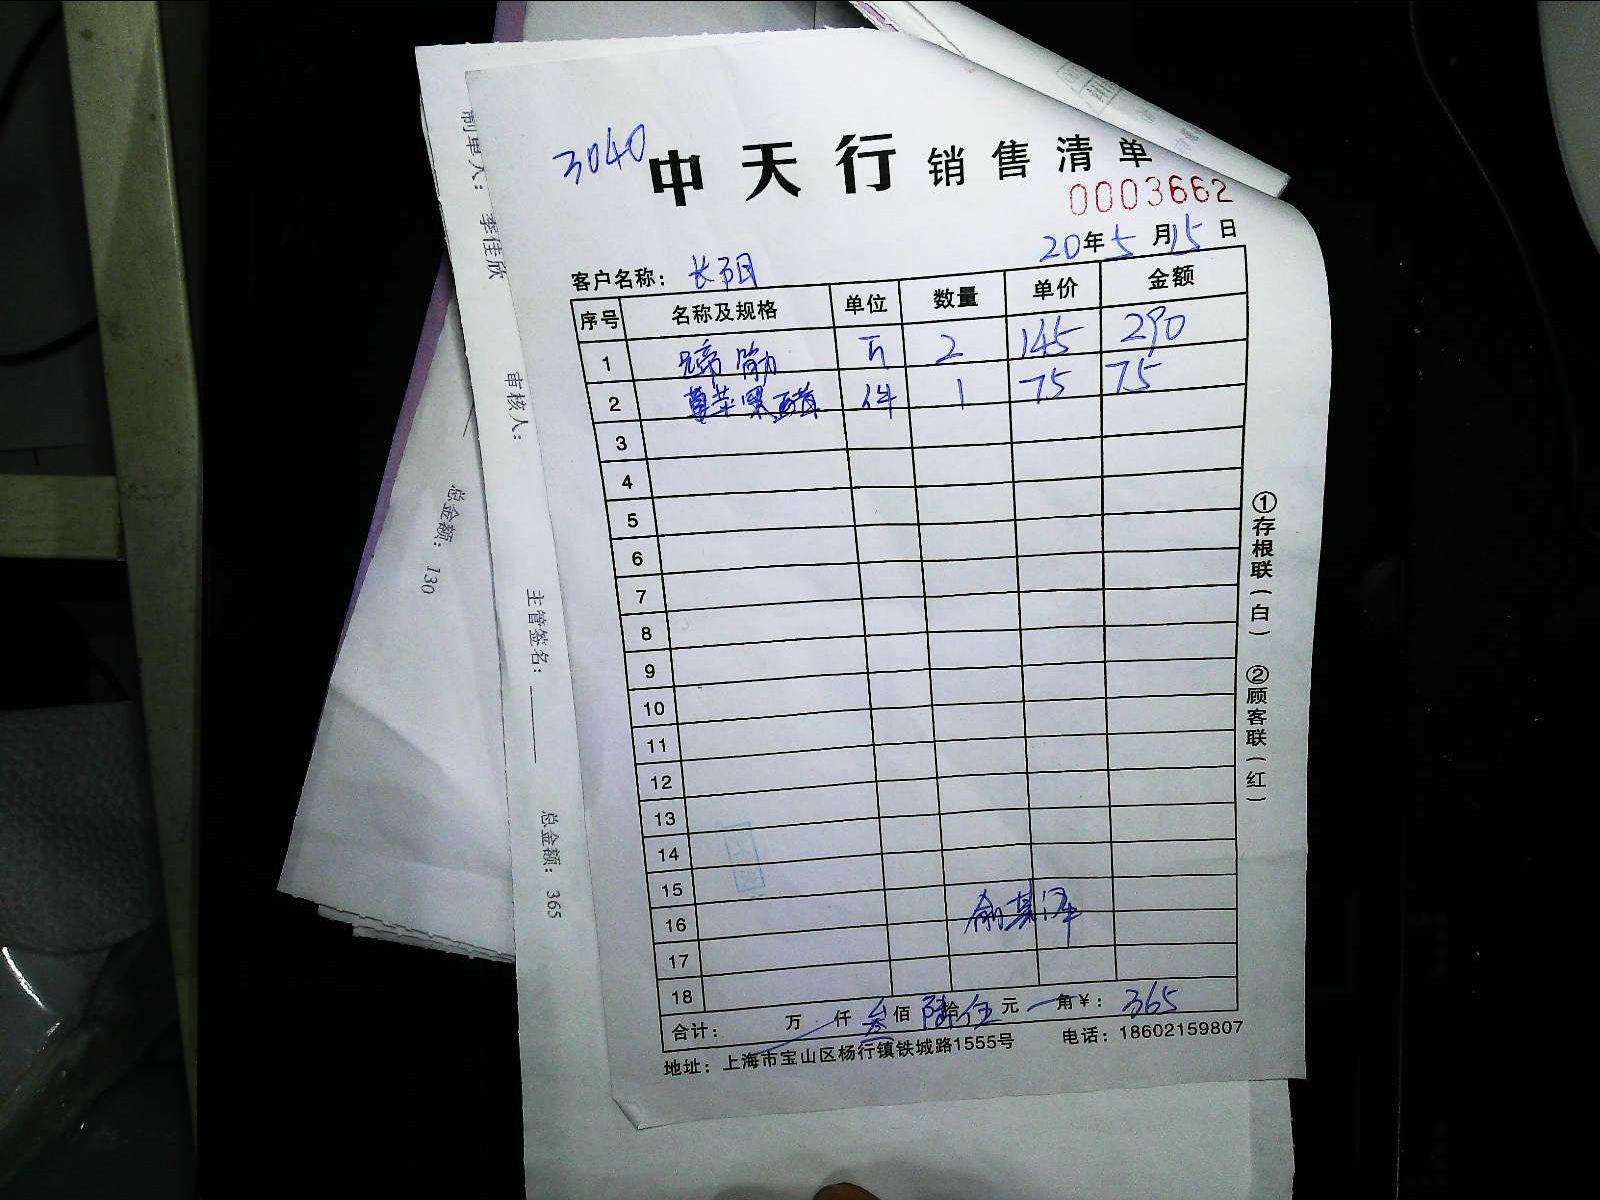 3040
中天行 销售清单
0003662
20年5月15日
客户名称： 长阳
序号 名称及规格 单位 数量 单价 金额
1 蹄筋 2 145 290
2 苹果醋 件 1 75 75
3
4
5
6
7
8
9
10
11
12
13
14
15
16
17
18
合计： 万 仟 叁佰 陆拾 伍元 角￥： 365
地址：上海市宝山区杨行镇铁城路1555号 电话：18602159807
①存根联（白） ②顾客联（红）
制单人： 李佳欣 审核人： 主管签名： 总金额： 365
总金额： 130